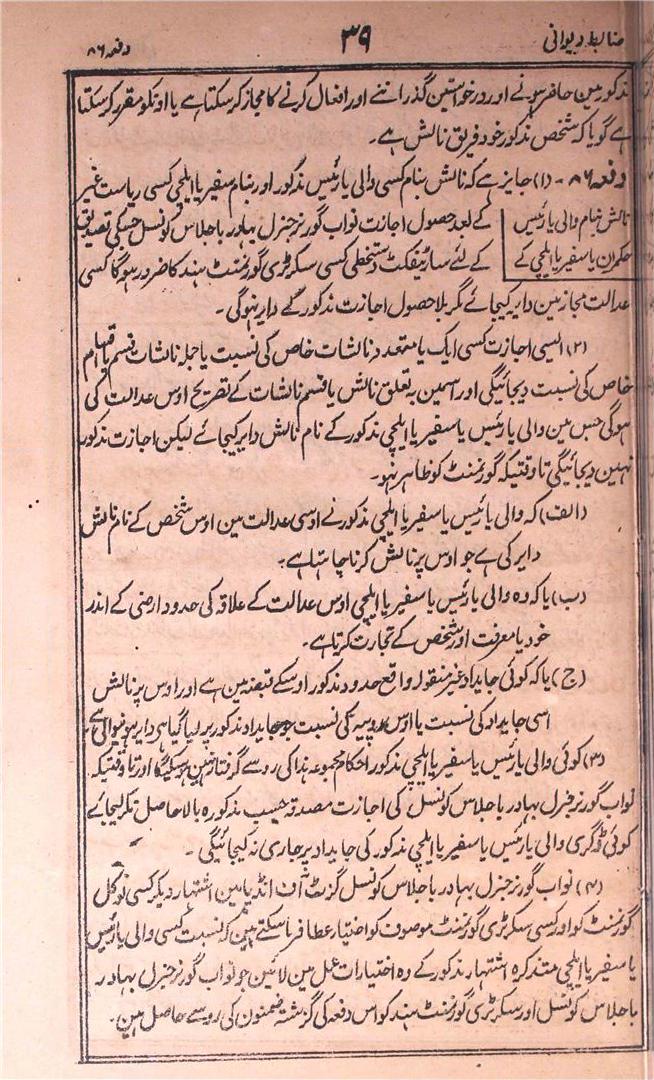 ضابطہ دیوانی ۳۹ دفعہ ۸۶
مذکور مین حاضر ہونے اور درخواستین گذراننے اور افعال کرنے کا مجاز کر سکتا ہے یا اونکو مقرر کر سکتا
ہے گویا کہ شخص مذکور خود فریق نالش ہے۔
دفعہ ۸۶ - (۱) جایز ہے کہ نالش بنام کسی والی یا رئیس مذکور اور بنام سفیر یا ایلچی کسی ریاست غیر
نالش بنام والی یا رئیس
حکمران یا سفیر یا ایلچی کے
کے بعد حصول اجازت نواب گورنر جنرل بہادر باجلاس کونسل جسکی تصدیق
کے لئے سارٹیفکٹ دستخطی کسی سکرٹری گورنمنٹ ہند کا ضرور ہوگا کسی
عدالت مجاز مین دایر کیجائے مگر بلا حصول اجازت مذکور کے دایر نہوگی۔
(۲) ایسی اجازت کسی ایک یا متعدد نالشات خاص کی نسبت یا جملہ نالشات قسم یا اقسام
خاص کی نسبت دیجائیگی اور اسمین بہ تعلق نالش یا قسم نالشات کے تصریح اوس عدالت کی
ہوگی جس مین والی یا رئیس یا سفیر یا ایلچی مذکور کے نام نالش دایر کیجائے لیکن اجازت مذکور
نہین دیجائیگی تا وقتیکہ گورنمنٹ کو ظاہر نہو۔
(الف) کہ والی یا رئیس یا سفیر یا ایلچی مذکور نے اوسی عدالت مین اوس شخص کے نام نالش
دایر کی ہے جو اوس پر نالش کرنا چاہتا ہے۔
(ب) یا کہ وہ والی یا رئیس یا سفیر یا ایلچی اوس عدالت کے علاقہ کی حدود ارضی کے اندر
خود یا معرفت اور شخص کے تجارت کرتا ہے۔
(ج) یا کہ کوئی جایداد غیر منقولہ واقع حدود مذکور اوسکے قبضہ مین ہے اور اوس پر نالش
اسی جایداد کی نسبت یا اوس روپیہ کی نسبت جو جایداد مذکور پر لیا گیا ہی دایر ہونیوالی ہے
(۳) کوئی والی یا رئیس یا سفیر یا ایلچی مذکور احکام مجموعہ ہذا کی رو سے گرفتار نہین ہوسکیگا اور تا وقتیکہ
نواب گورنر جنرل بہادر باجلاس کونسل کی اجازت مصدقہ حسب مذکورہ بالا حاصل نکر لیجائے
کوئی ڈگری والی یا رئیس یا سفیر یا ایلچی مذکور کی جایداد پر جاری نہ کیجائیگی۔
(۴) نواب گورنر جنرل بہادر باجلاس کونسل گزٹ آف انڈیا مین اشتہار دیکر کسی لوکل
گورنمنٹ کو اور کسی سکرٹری گورنمنٹ موصوف کو اختیار عطا فرما سکتے ہین کہ نسبت کسی والی یا رئیس
یا سفیر یا ایلچی متذکرہ اشتہار مذکور کے وہ اختیارات عمل مین لائین جو نواب گورنر جنرل بہادر
باجلاس کونسل اور سکرٹری گورنمنٹ ہند کو اس دفعہ کی گزشتہ ضمنون کی رو سے حاصل ہین۔